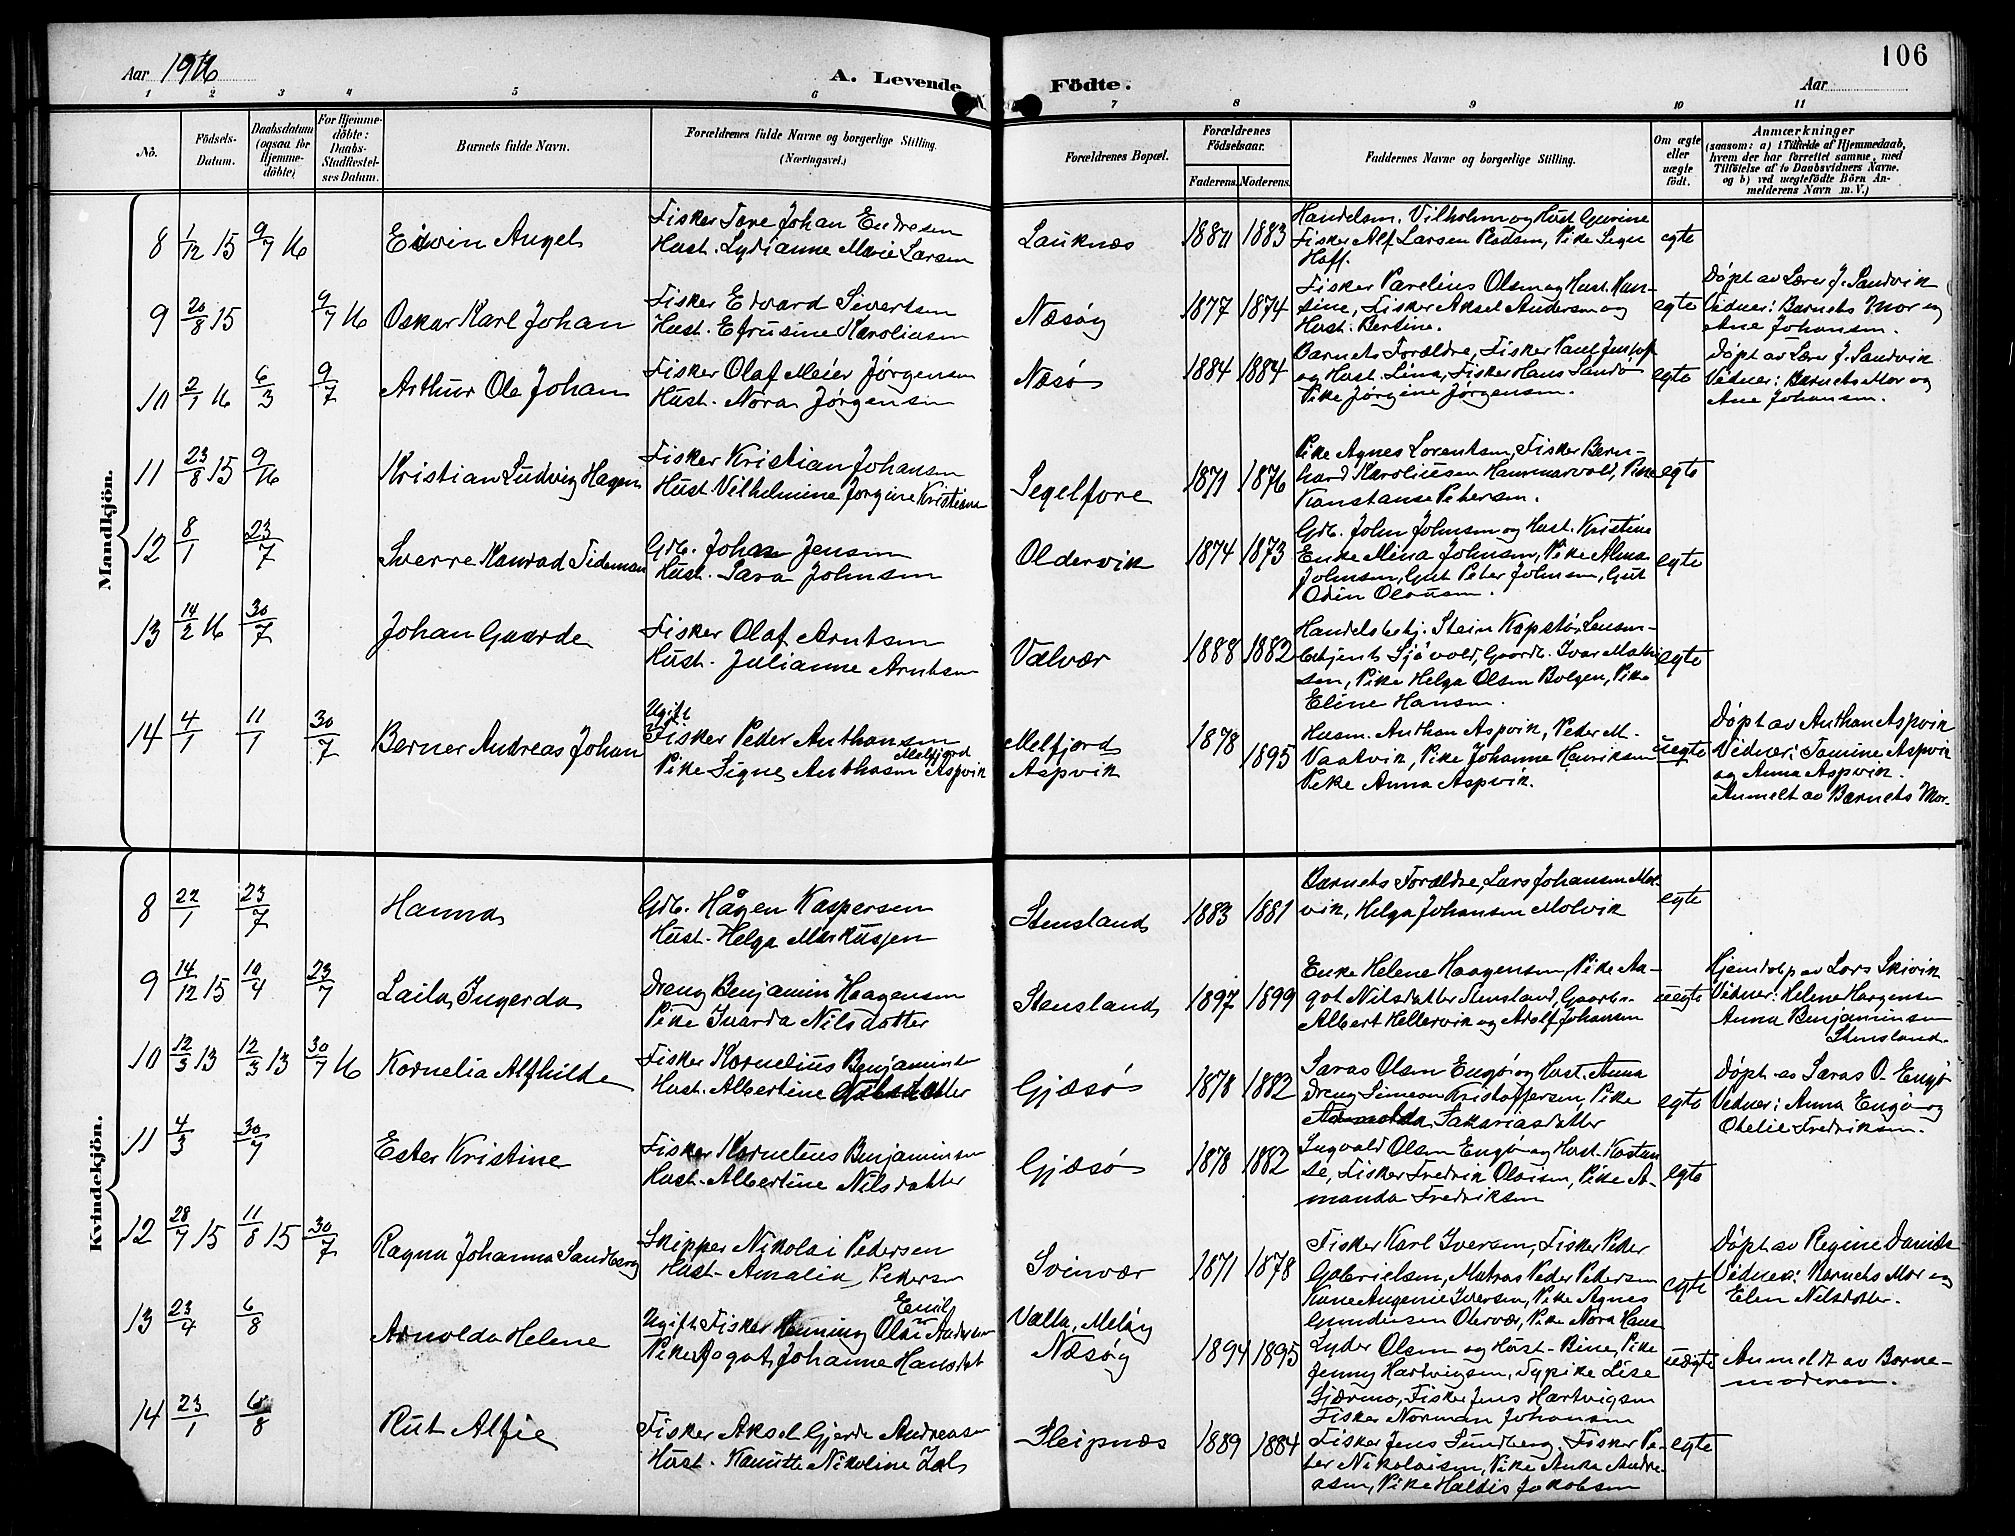 Aar 1916
A. Levende Födte.
106
Aar
1 2 3 4 5 6 7 8 9 10 11
No.
Födsels-
Datum.
Daabsdatum
(ogsaa for
Hjemme-
döbte)
For Hjemme-
döbte:
Daabs-
Stadfæstel-
ses Datum.
Barnets fulde Navn.
Forældrenes fulde Navne og borgerlige Stilling.
(Næringsvei.)
Forældrenes Bopæl.
Forældrenes
Födselsaar.
Faderens. Moderens.
Faddernes Navne og borgerlige Stilling.
Om ægte
eller
uægte
født.
Anmærkninger
(saasom: a) i Tilfælde af Hjemmedaab,
hvem der har forrettet samme, med
Tilföielse af to Daabsvidners Navne.
og b) ved uægtefödte Börn An-
melderens Navn m. V.)
Mandkjön.
8 1/12 15 9/7 16 Edvin Angel
Fisker Tore Johan Endresen
Hust. Lydianne Marie Larsen
Lauknæs 1880 1883
Handelsm. Vilhelm og Hust Gurine
Fisker Alf Larsen Rødsen, Pike Signe
Hoff.
egte
9 20/8 15 9/7 16 Oskar Karl Johan
Fisker Edvard Sivertsen
Hust. Efrusine Karoliusen
Næsøy 1877 1874
Fisker Parelius Olsen og Hust. Han-
sine, Fisker Aksel Andersen og
Hust. Bertine.
egte
Døpt av Lærer J. Sandvik
Vidner: Barnets Mor og
Ane Johansen.
10 2/1 16 6/3 9/7 Arthur Ole Johan
Fisker Olaf Meier Jørgensen
Hust. Nora Jørgensen
Næsø 1884 1884
Barnets Forældre, Fisker Paul Jentoft
og Hust. Lina, Fisker Hans Sandø
Pike Jørgine Jørgensen.
egte
Døpt av Lærer J. Sandvik
Vidner: Barnets Mor og
Ane Johansen.
11 23/8 15 9/16 Kristian Ludvig Hagen
Fisker Kristian Johansen
Hust. Vilhelmine Jørgine Kristians
Segelfore 1871 1876
Pike Agnes Lorentsen, Fisker Bern-
hard Karoliusen Hammarvold, Pike
Konstanse Petersen.
egte
12 8/1 23/7 Sverre Konrad Tideman
Gdb. Johan Jensen
Hust. Sara Johnsen
Oldervik 1874 1873
Gdb. John Johnsen og Hust. Kristine
Enke Mina Johnsen, Pike Alma
Johnsen, Gut Peter Johnsen, Gut
Odin Olausen.
egte
13 14/2 16 30/7 Johan Gaarde
Fisker Olaf Arntsen
Hust. Julianne Arntsen
Valvær 1888 1882
Handelsbetj. Stein Kopstø, Lensm-
betjent Sjøvold, Gaardb. Ivar Mathi
sen, Pike Helga Olsen Bolgen, Pike
Eline Hansen.
egte
14 4/1 11/1 30/7 Berner Andreas Johan
Ugift
Fisker Peder Anthonsen
Melfjord
Pike Signe Anthonsen Aspvik
Melfjord
Aspvik
1878 1895
Husm. Anthon Aspvik, Peder M.
Vaatvik, Pike Johanne Henriksen
Pike Anna Aspvik.
uegte
Døpt av Anthon Aspvik
Vidner: Tomine Aspvik
og Anna Aspvik.
Anmelt av Barnets Mor.
Kvindekjön.
8 22/1 23/7 Hanna
Gdb. Hågen Kaspersen
Hust. Helga Markussen
Stensland 1883 1881
Barnets Forældre, Lars Johansen Mol-
vik, Helga Johansen Molvik
egte
9 14/12 15 10/4 23/7 Laila Ingerda
Dreng Benjamin Haagensen
Pike Ivarda Nilsdatter
Stensland 1897 1899
Enke Helene Haagensen, Pike Aa-
got Nilsdatter Stensland, Gaardb.
Albert Hellervik og Adolf Johansen
uegte
Hjemdøp av Lars Skivik
Vidner: Helene Haagensen
Anna Benjaminsen
Stensland.
10 12/3 13 12/3 13 30/7 16 Kornelia Alfhilde
Fisker Kornelius Benjaminsen
Hust. Albertine Nilsdatter
Gjæsø 1878 1882
Saras Olsen Engø og Hust. Anna
Dreng Simeon Kristoffersen, Pike
Arnolda Sakariasdatter
egte
Døpt av Saras O. Engø
Vidner: Anna Engø og
Otelie Fredriksen.
11 4/3 30/7 Ester Kristine
Fisker Kornelius Benjaminsen
Hust. Albertine Nilsdatter
Gjæsø 1878 1882
Ingvald Olsen Engø og Hust. Kostan
se, Fisker Fredrik Olaisen, Pike A-
manda Fredriksen
egte
12 28/7 15 11/8 15 30/7 Ragna Johanna Sandberg
Skipper Nikolai Pedersen
Hust. Amalia Pedersen
Svinvær 1871 1878
Fisker Karl Iversen, Fisker Peder
Gabrielsen, Matros Peder Pedersen
Kone Augenie Iversen, Pike Agnes
Gundersen Olsvær, Pike Nora Hans
egte
Døpt av Regine Daniels
Vidner: Barnets Mor og
Elen Nilsdatter.
13 23/4 6/8 Arnolda Helene
Emil
Ugift Fisker Henning Olai Andersen
Pike Aagot Johanne Hansdat
Valla, Meløy
Næsøy
1894 1895
Lyder Olsen og Hust. Bine, Pike
Jenny Hartvigsen, Typike Lise
Sjærmo, Fisker Jens Hartvigsen
Fisker Norman Johansen
uegte
Anmeldt av Barne-
moderen.
14 23/1 6/8 Rut Alfie
Fisker Aksel Gjerde Andreasen
Hust. Kamitte Nikoline
Sleipnæs 1889 1884
Fisker Jens Sundberg, Fisker Pe-
ter Nikolaisen, Pike Anka Andre-
asen, Pike Haldis Jakobsen
egte